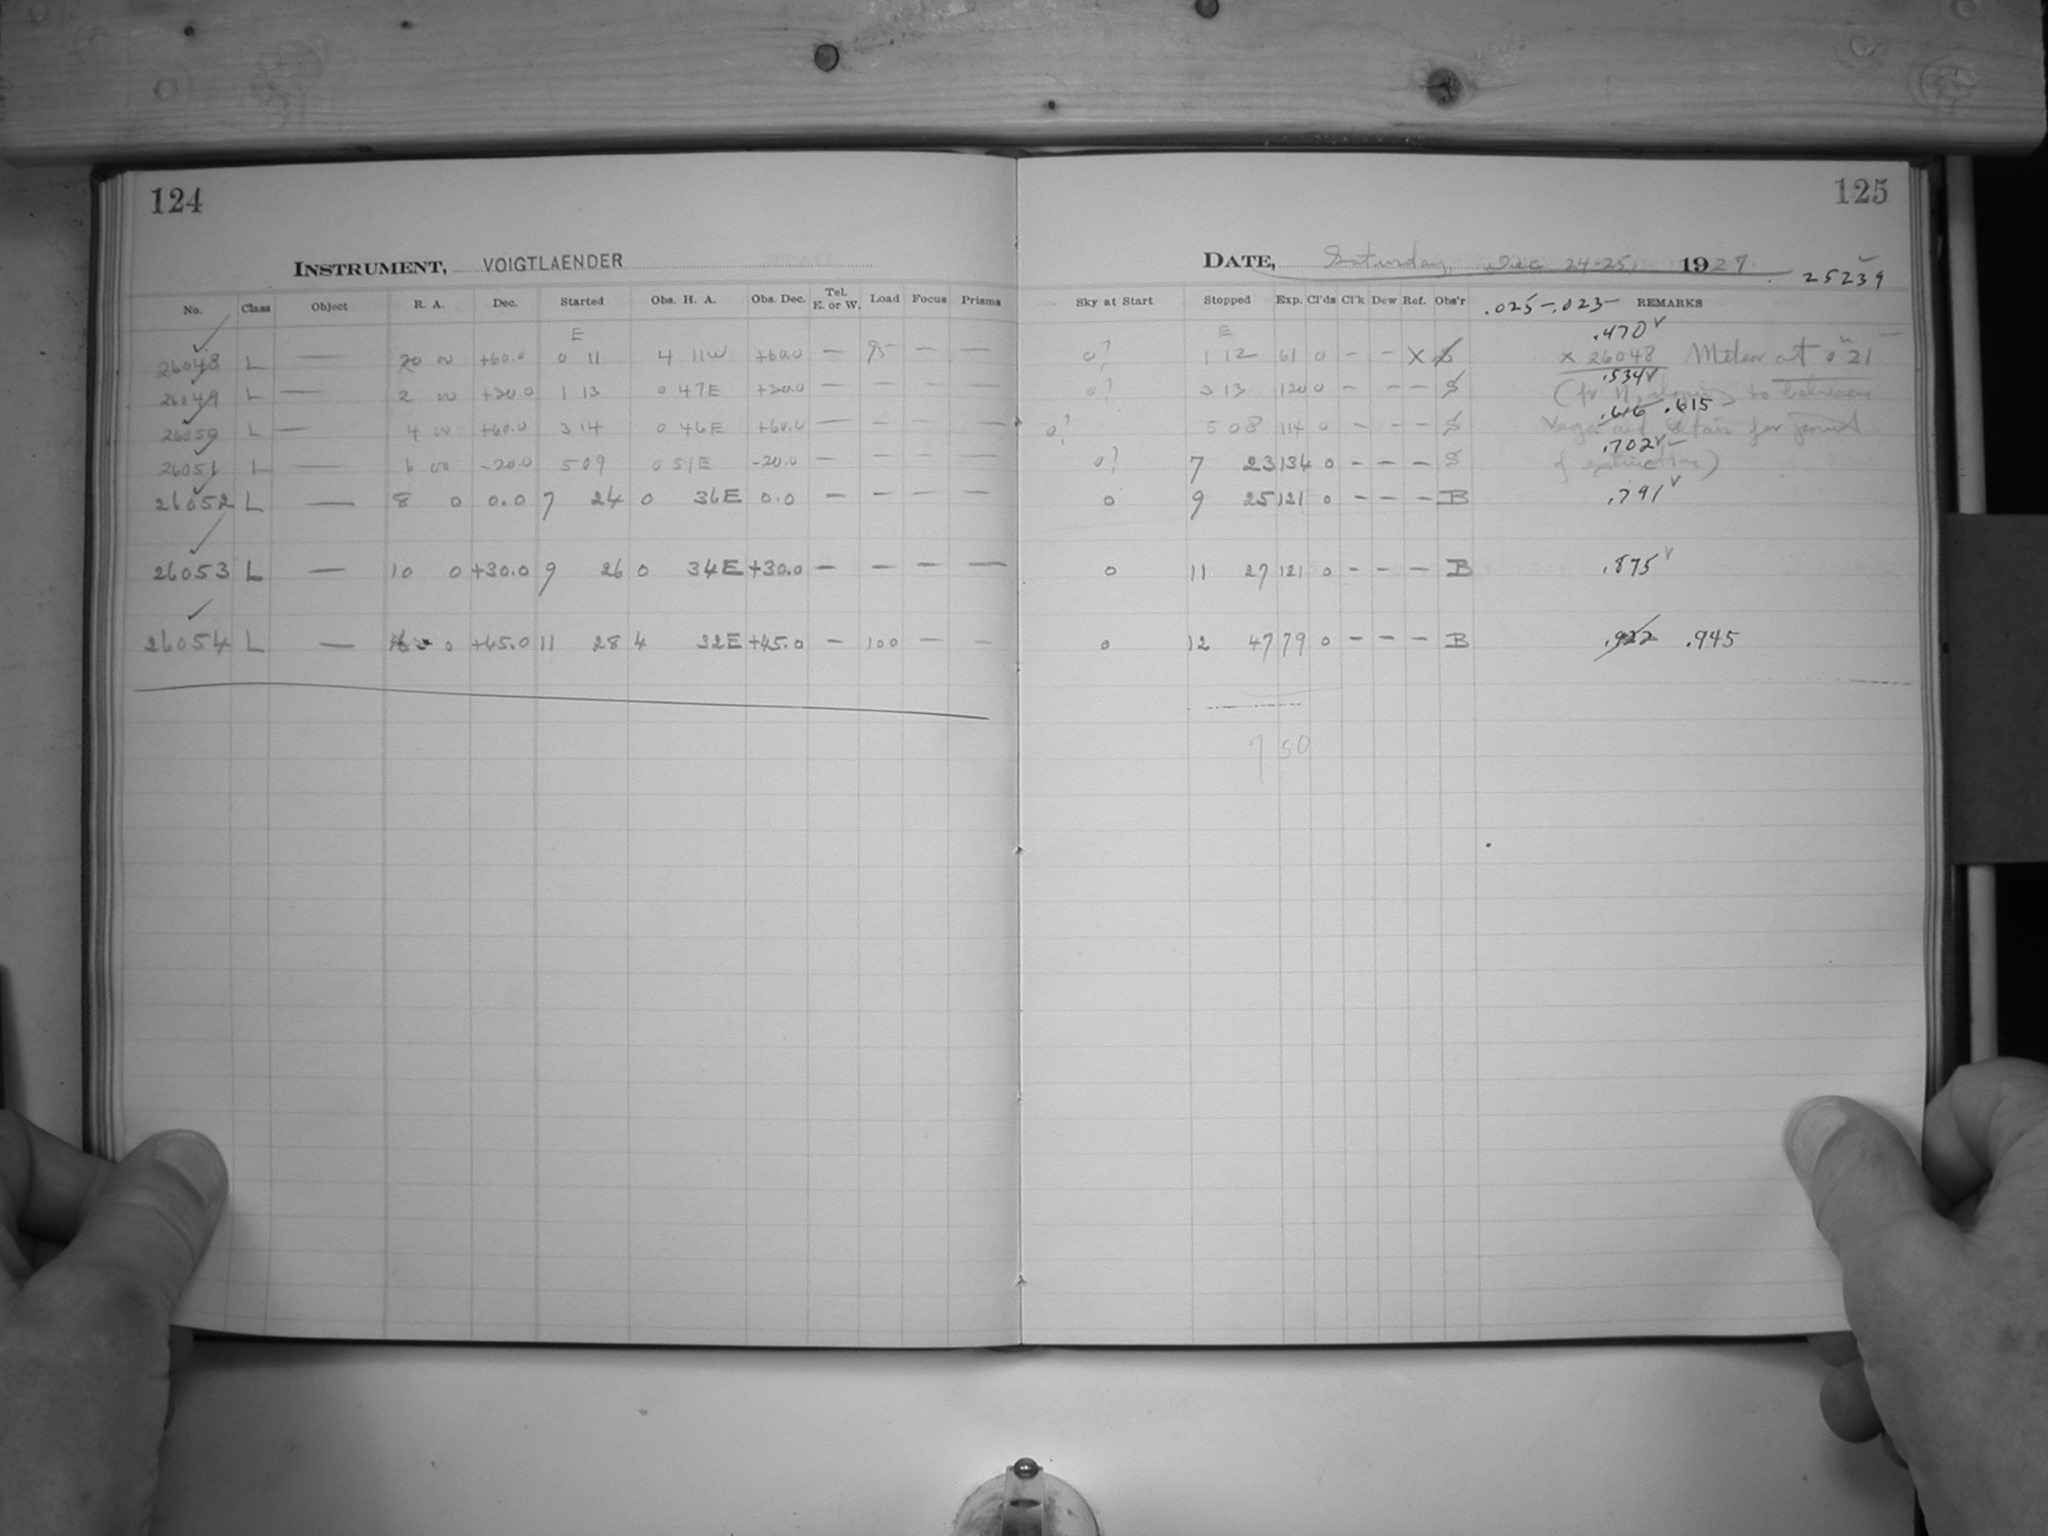 124
INSTRUMENT, VOIGTLAENDER
No. Class Object R. A. Dec. Started Obs. H. A. Obs. Dec. Tel. E. or W. Load Focus Prisms
E
26048 L — 20 00 +60.0 0 11 4 11W +60.0 — 95 — —
26049 L — 2 00 +30.0 1 13 0 47E +30.0 — — — —
26050 L — 4 00 +60.0 3 14 0 46E +60.0 — — — —
26051 L — 6 00 -20.0 5 09 0 51E -20.0 — — — —
26052 L — 8 0 0.0 7 24 0 36E 0.0 — — — —
26053 L — 10 0 +30.0 9 26 0 34E +30.0 — — — —
26054 L — 0 +45.0 11 28 4 32E +45.0 — 100 — —
125
DATE, Saturday, Dec 24-25, 1927.
25239
Sky at Start Stopped Exp. Cl'ds Cl'k Dew Ref. Obs'r .025-.023- REMARKS
E .470
0? 1 12 61 0 - - X S x 26048 Meteor at 0 21
.534
0? 3 13 120 0 - - - S to between
.616 .615
0? 5 08 114 0 - - - S Vega and Altair for
.702
0? 7 23 134 0 - - - S of extinction)
0 9 25 121 0 - - - B .791
0 11 27 121 0 - - - B .875
0 12 47 79 0 - - - B .922 .945
7 50